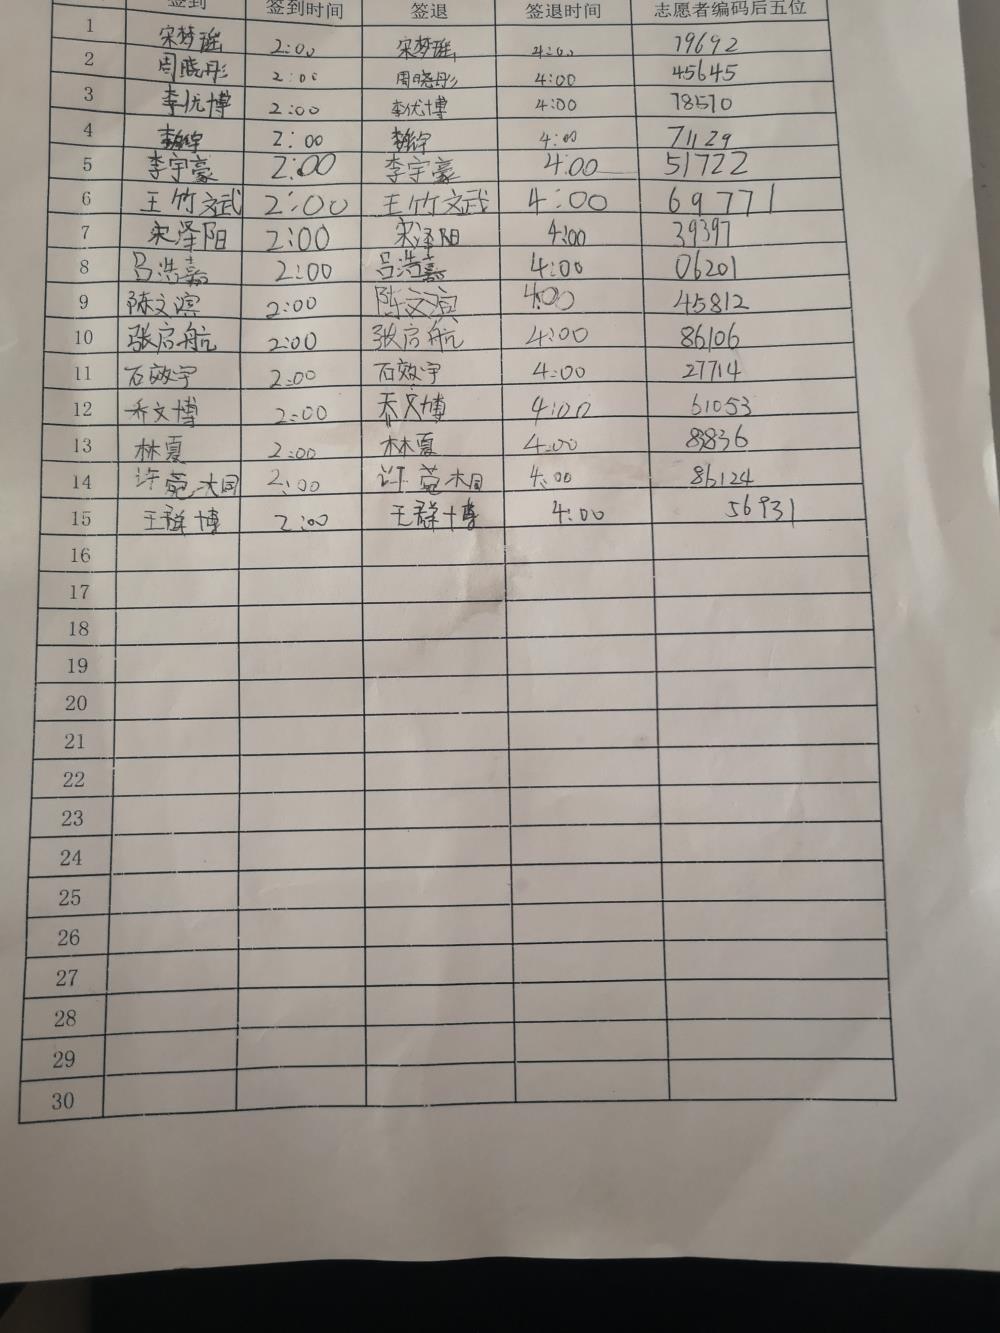 签到 签到时间 签退 签退时间 志愿者编码后五位
1 宋梦瑶 2:00 宋梦瑶 4:00 79692
2 周晓彤 2:00 周晓彤 4:00 45645
3 李优博 2:00 李优博 4:00 78570
4 2:00 4:00 71129
5 李宇豪 2:00 李宇豪 4:00 51722
6 王竹文武 2:00 王竹文武 4:00 69771
7 宋泽阳 2:00 宋泽阳 4:00 39397
8 吕浩嘉 2:00 吕浩嘉 4:00 06201
9 陈文滨 2:00 陈文滨 4:00 45812
10 张启航 2:00 张启航 4:00 86106
11 石效宇 2:00 石效宇 4:00 27714
12 乔文博 2:00 乔文博 4:00 61053
13 林夏 2:00 林夏 4:00 83836
14 许菀沐同 2:00 许菀沐同 4:00 86124
15 王群博 2:00 王群博 4:00 56931
16
17
18
19
20
21
22
23
24
25
26
27
28
29
30